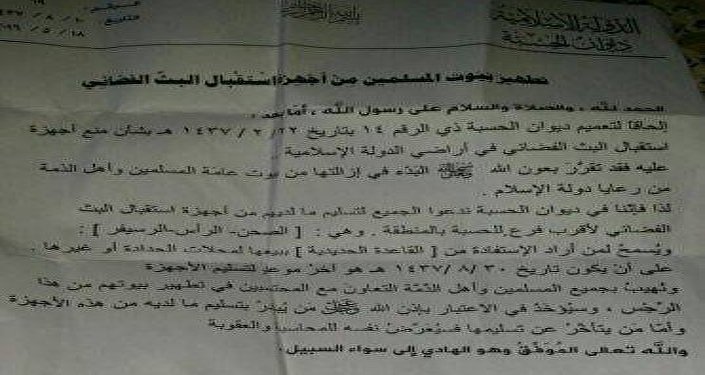 الدولة الإسلامية
ديوان الحسبة
التاريخ
تطهير بيوت المسلمين من أجهزة استقبال البث الفضائي
الحمد لله ، والصلاة والسلام على رسول الله ، أما بعد :
إلحاقاً لتعميم ديوان الحسبة ذي الرقم ١٤ بتاريخ ٢٢ / ٢ / ١٤٣٧ هـ بشأن منع أجهزة
استقبال البث الفضائي في أراضي الدولة الإسلامية .
عليه فقد تقرّر بعون الله ﷻ البدء في إزالتها من بيوت عامة المسلمين وأهل الذمة
من رعايا دولة الإسلام .
لذا فإننا في ديوان الحسبة ندعوا الجميع لتسليم ما لديهم من أجهزة استقبال البث
الفضائي لأقرب فرع للحسبة بالمنطقة . وهي : [ الصحن-الرأس-الرسيفر ] :
ويُسمح لمن أراد الإستفادة من [ القاعدة الحديدية ] ببيعها لمحلات الحدادة أو غيرها .
على أن يكون تاريخ ٣٠ / ٨ / ١٤٣٧ هـ هو آخر موعد لتسليم الأجهزة
ونهيب بجميع المسلمين وأهل الذمّة التعاون مع المحتسبين في تطهير بيوتهم من هذا
الرجس ، وسيؤخذ في الاعتبار بإذن الله ﷻ من يُبدر بتسليم ما لديه من هذه الأجهزة
وأما من يتأخّر عن تسليمها فسيُعرّض نفسه للمحاسبة والعقوبة
والله تعالى المُوفّق وهو الهادي إلى سواء السبيل .